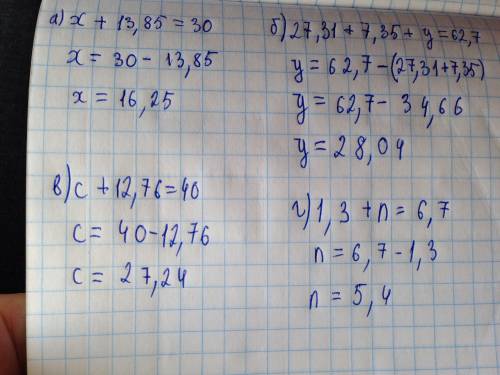 а) x + 13,85 = 30
x = 30 - 13,85
x = 16,25
б) 27,31 + 7,35 + y = 62,7
y = 62,7 - (27,31 + 7,35)
y = 62,7 - 34,66
y = 28,04
в) c + 12,76 = 40
c = 40 - 12,76
c = 27,24
г) 1,3 + n = 6,7
n = 6,7 - 1,3
n = 5,4